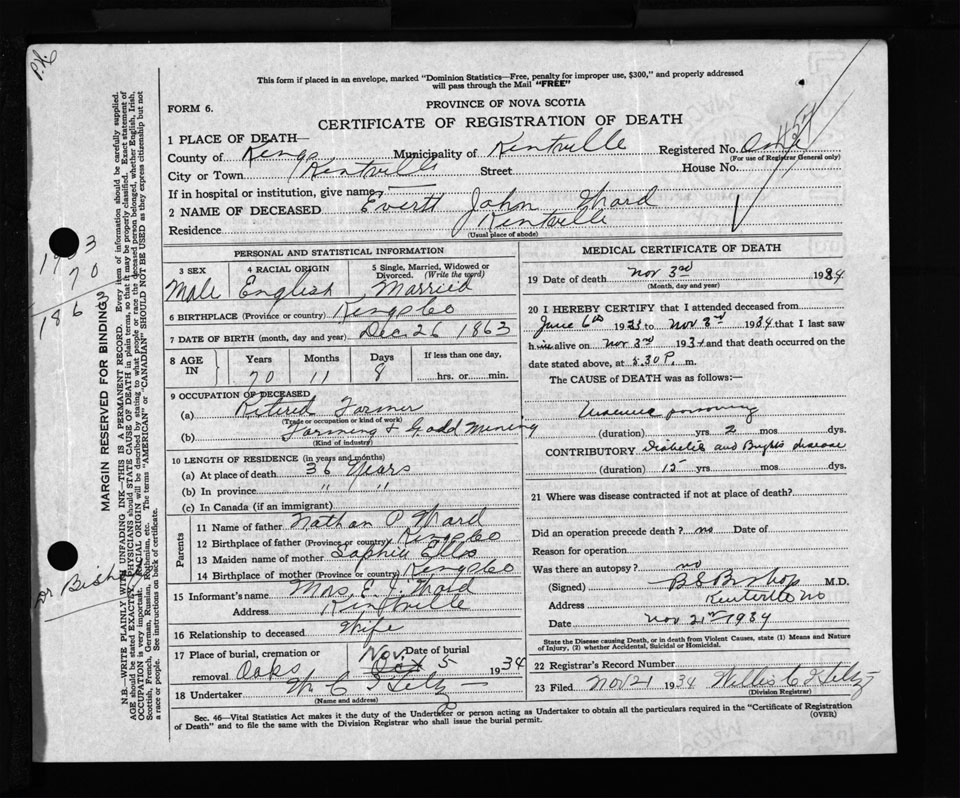 P.K.
This form if placed in an envelope, marked "Dominion Statistics—Free, penalty for improper use, $300," and properly addressed
will pass through the Mail "FREE"
PROVINCE OF NOVA SCOTIA
FORM 6.
CERTIFICATE OF REGISTRATION OF DEATH
1 PLACE OF DEATH—
County of Kings Municipality of Kentville Registered No.
(For use of Registrar General only)
City or Town Kentville Street House No.
If in hospital or institution, give name
2 NAME OF DECEASED Everett John Ward
Residence Kentville
(Usual place of abode)
PERSONAL AND STATISTICAL INFORMATION
3 SEX 4 RACIAL ORIGIN 5 Single, Married, Widowed or
Divorced. (Write the word)
Male English Married
6 BIRTHPLACE (Province or country) Kings Co
7 DATE OF BIRTH (month, day and year) Dec 26 1863
8 AGE IN Years Months Days If less than one day,
70 11 8 hrs. or min.
9 OCCUPATION OF DECEASED
(a) Retired Farmer
(Trade or occupation or kind of work)
(b) Farming & Gold Mining
(Kind of industry)
10 LENGTH OF RESIDENCE (in years and months)
(a) At place of death 36 Years
(b) In province " "
(c) In Canada (if an immigrant)
Parents
11 Name of father Nathan P Ward
12 Birthplace of father (Province or country) Kings Co
13 Maiden name of mother Sophia Ells
14 Birthplace of mother (Province or country) Kings Co
15 Informant's name Mrs. E. J. Ward
Address Kentville
16 Relationship to deceased Wife
17 Place of burial, cremation or Date of burial
removal Oaks Nov. Oct 5 1934
18 Undertaker W C
(Name and address)
MEDICAL CERTIFICATE OF DEATH
19 Date of death Nov 3rd 1934
(Month, day and year)
20 I HEREBY CERTIFY that I attended deceased from
June 6th 1933 to Nov 3rd 1934 that I last saw
him alive on Nov 3rd 1934 and that death occurred on the
date stated above, at 5.30 P. m.
The CAUSE of DEATH was as follows:
Uraemic poisoning
(duration) yrs 2 mos dys.
CONTRIBUTORY Diabetes and Brights disease
(duration) 15 yrs mos dys.
21 Where was disease contracted if not at place of death?
Did an operation precede death? no Date of
Reason for operation
Was there an autopsy? no
(Signed) B S Bishop M.D.
Address Kentville NS
Date Nov 21st 1934
State the Disease causing Death, or in death from Violent Causes, state (1) Means and Nature
of Injury, (2) whether Accidental, Suicidal or Homicidal.
22 Registrar's Record Number
23 Filed Nov 21 1934 Willis C
(Division Registrar)
Sec. 46—Vital Statistics Act makes it the duty of the Undertaker or person acting as Undertaker to obtain all the particulars required in the "Certificate of Registration
of Death" and to file the same with the Division Registrar who shall issue the burial permit. (OVER)
MARGIN RESERVED FOR BINDING
N.B.—WRITE PLAINLY WITH UNFADING INK—THIS IS A PERMANENT RECORD. Every item of information should be carefully supplied.
AGE should be stated EXACTLY. PHYSICIANS should STATE CAUSE OF DEATH in plain terms, so that it may be properly classified. Exact statement of
OCCUPATION is very important. RACIAL ORIGIN will be described by stating to what people or race the deceased person belonged, whether English, Irish,
Scottish, French, German, Russian, Ruthenian, etc. The terms "AMERICAN" or "CANADIAN" SHOULD NOT BE USED as they express citizenship but not
a race or people. See instructions on back of certificate.
70
186
Dr Bishop